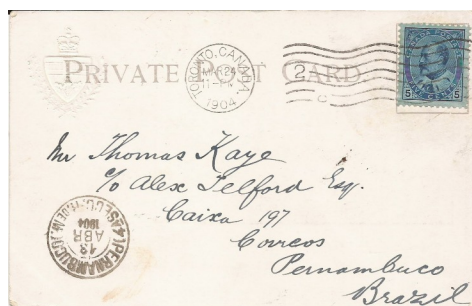 PRIVATE POST CARD.
TORONTO, CANADA
MAR 24
11-PM
1904
2
C
CANADA POSTAGE
5 5
Mr Thomas Kaye
c/o Alex Telford Esq.
Caixa 197
Correos
Pernambuco
Brazil
PERNAMBUCO
13
ABR
1904